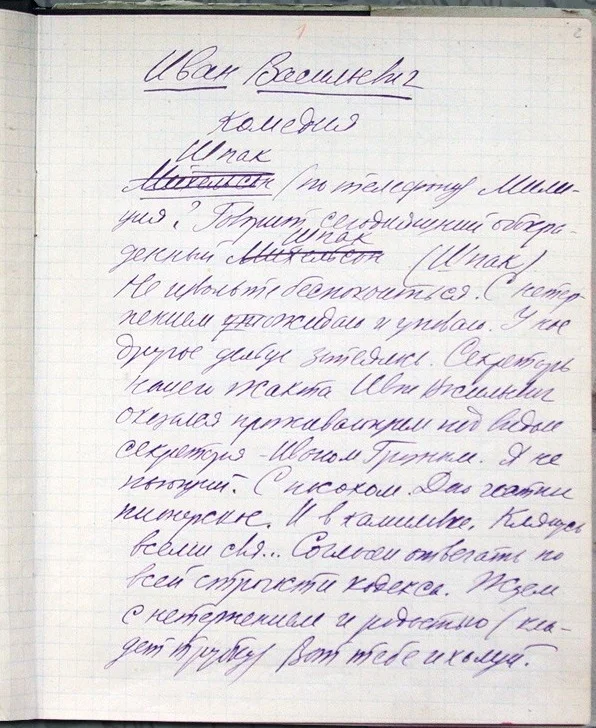 1
2
Иван Васильевич
Комедия
Шпак
Михельсон (по телефону) Мили-
ция? Говорит сегодняшний обкра-
Шпак
денный Михельсон (Шпак)
Не извольте беспокоиться. С нетер-
пением ожидаю и уповаю. У нас
другое дельце затеялось. Секретарь
нашего жакта Иван Васильевич
оказался проживающим под видом
секретаря - Иваном Грозным. Я не
пьющий. С посохом. Дао
пионерские. И в
всеми свя... Согласен отвечать по
всей строгости кодекса. Ждем
с нетерпением и радостью (кла-
дет трубку) Вот тебе и холуй.